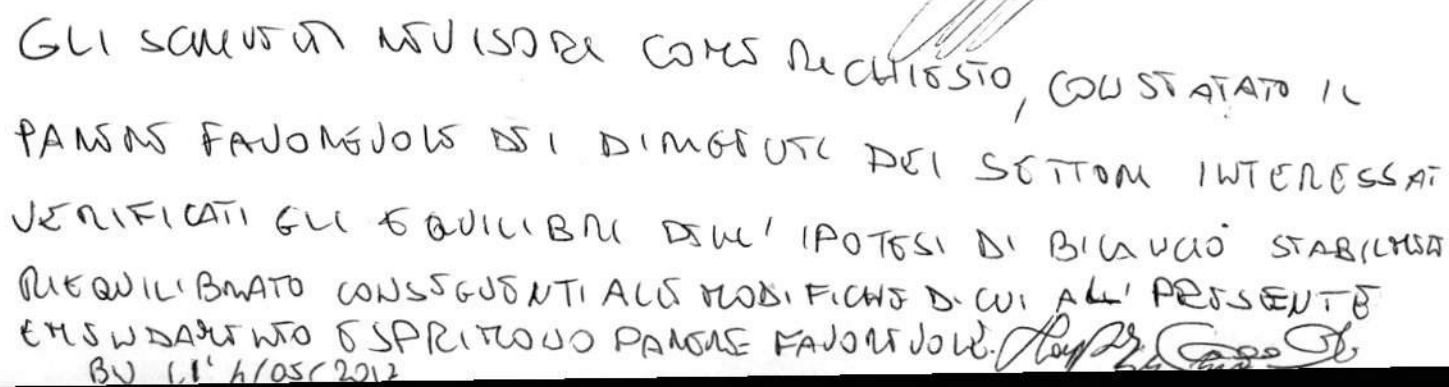 GLI SCRIVENTI REVISORI COME RICHIESTO, CONSTATATO IL
PARERE FAVOREVOLE DEI DIRIGENTI DEI SETTORI INTERESSATI
VERIFICATI GLI EQUILIBRI DELL' IPOTESI DI BILANCIO STABILMENTE
RIEQUILIBRATO CONSEGUENTI ALLE MODIFICHE DI CUI ALL' PRESENTE
EMENDAMENTO ESPRIMONO PARERE FAVOREVOLE.
LI' 4/05/2017